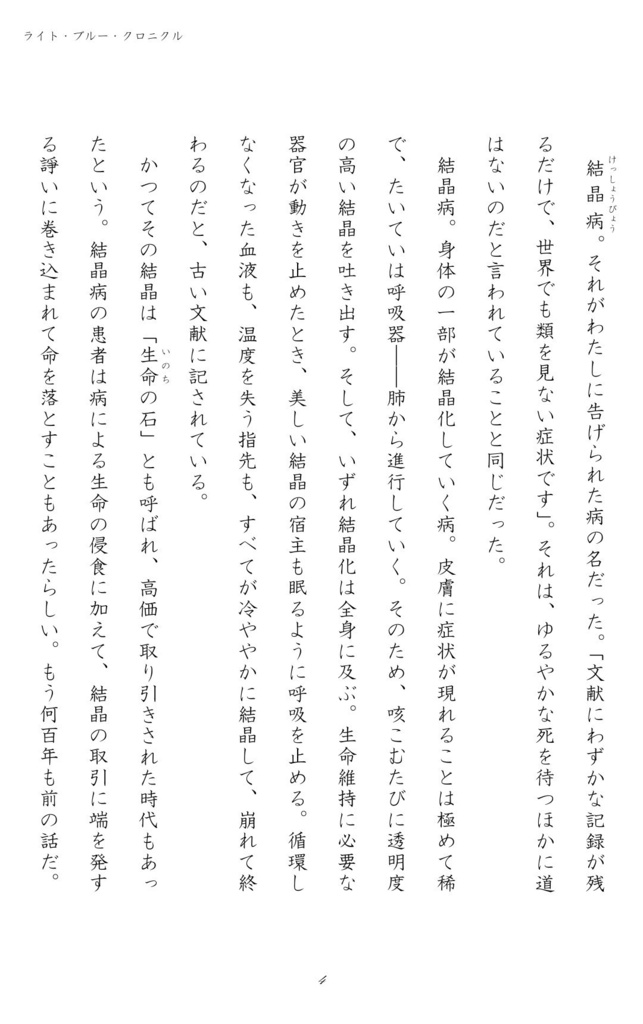 ライト・ブルー・クロニクル
けっしょうびょう
結晶病。それがわたしに告げられた病の名だった。「文献にわずかな記録が残
るだけで、世界でも類を見ない症状です」。それは、ゆるやかな死を待つほかに道
はないのだと言われていることと同じだった。
結晶病。身体の一部が結晶化していく病。皮膚に症状が現れることは極めて稀
で、たいていは呼吸器――肺から進行していく。そのため、咳こむたびに透明度
の高い結晶を吐き出す。そして、いずれ結晶化は全身に及ぶ。生命維持に必要な
器官が動きを止めたとき、美しい結晶の宿主も眠るように呼吸を止める。循環し
なくなった血液も、温度を失う指先も、すべてが冷ややかに結晶して、崩れて終
わるのだと、古い文献に記されている。
いのち
かつてその結晶は「生命の石」とも呼ばれ、高価で取り引きされた時代もあっ
たという。結晶病の患者は病による生命の侵食に加えて、結晶の取引に端を発す
る諍いに巻き込まれて命を落とすこともあったらしい。もう何百年も前の話だ。
4